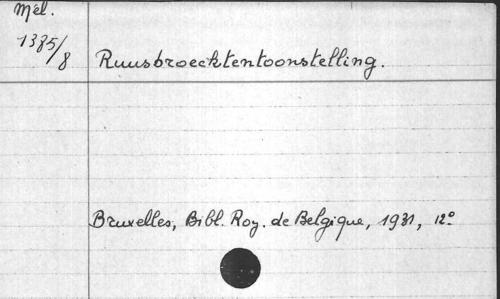 Mél.
1385/8
Ruusbroecktentoonstelling.
Bruxelles, Bibl. Roy. de Belgique, 1931, 12°